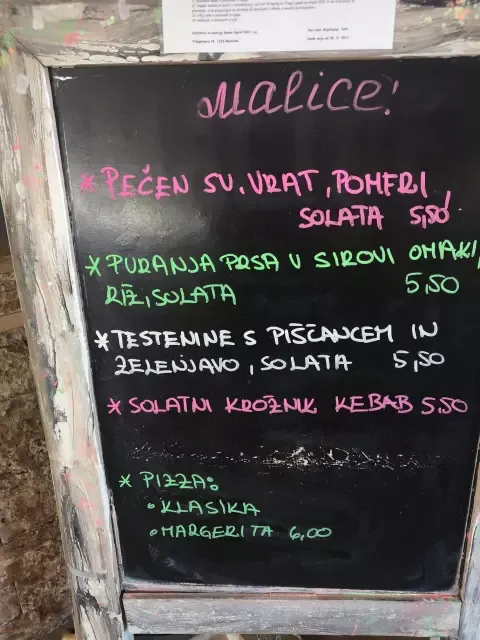 MALICE!
* PEČEN SV. VRAT, POMFRI,
SOLATA 5,50
* PURANJA PRSA V SIROVI OMAKI,
RIŽ, SOLATA 5,50
* TESTENINE S PIŠČANCEM IN
ZELENJAVO, SOLATA 5,50
* SOLATNI KROŽNIK KEBAB 5,50
* PIZZA:
• KLASIKA
• MARGERITA 6,00